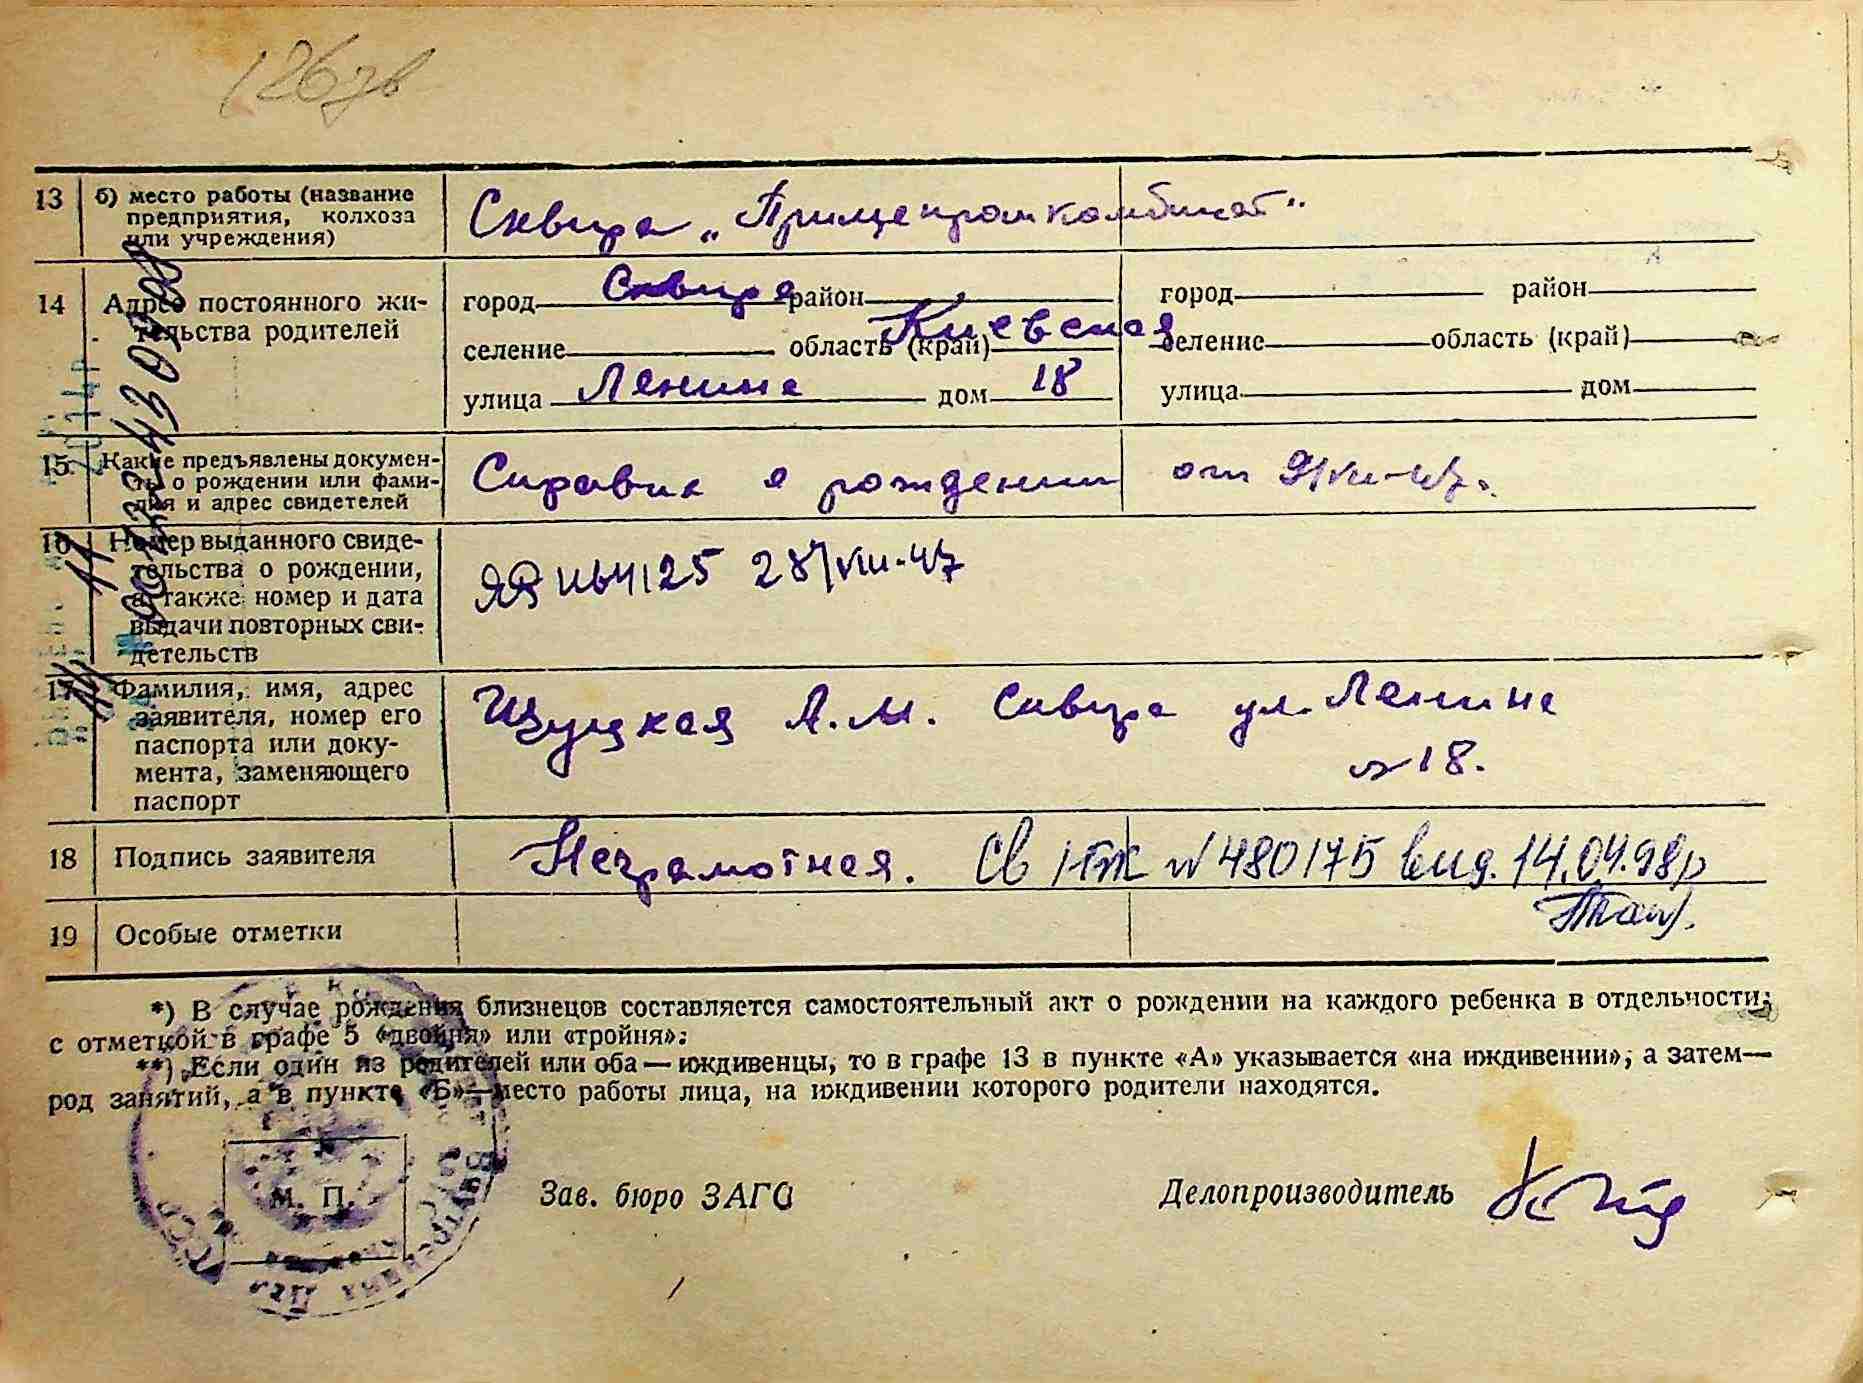 126
13 б) место работы (название предприятия, колхоза или учреждения) Сквира „Прищепромкомбинат"
14 Адрес постоянного жительства родителей
город Сквира район город район
селение область (край) Киевская селение область (край)
улица Ленина дом 18 улица дом
15 Какие предъявлены документы о рождении или фамилия и адрес свидетелей Справка о рождении от 9/VII-47.
16 Номер выданного свидетельства о рождении, а также номер и дата выдачи повторных свидетельств 28/VIII-47
17 Фамилия, имя, адрес заявителя, номер его паспорта или документа, заменяющего паспорт Щуцкая А.М. Сквира ул. Ленина
18.
18 Подпись заявителя Неграмотная. Св №480175 вид. 14.04.98р
19 Особые отметки
*) В случае рождения близнецов составляется самостоятельный акт о рождении на каждого ребенка в отдельности,
с отметкой в графе 5 «двойня» или «тройня».
**) Если один из родителей или оба — иждивенцы, то в графе 13 в пункте «А» указывается «на иждивении», а затем—
род занятий, а в пункте «Б»—место работы лица, на иждивении которого родители находятся.
М. П. Зав. бюро ЗАГС Делопроизводитель